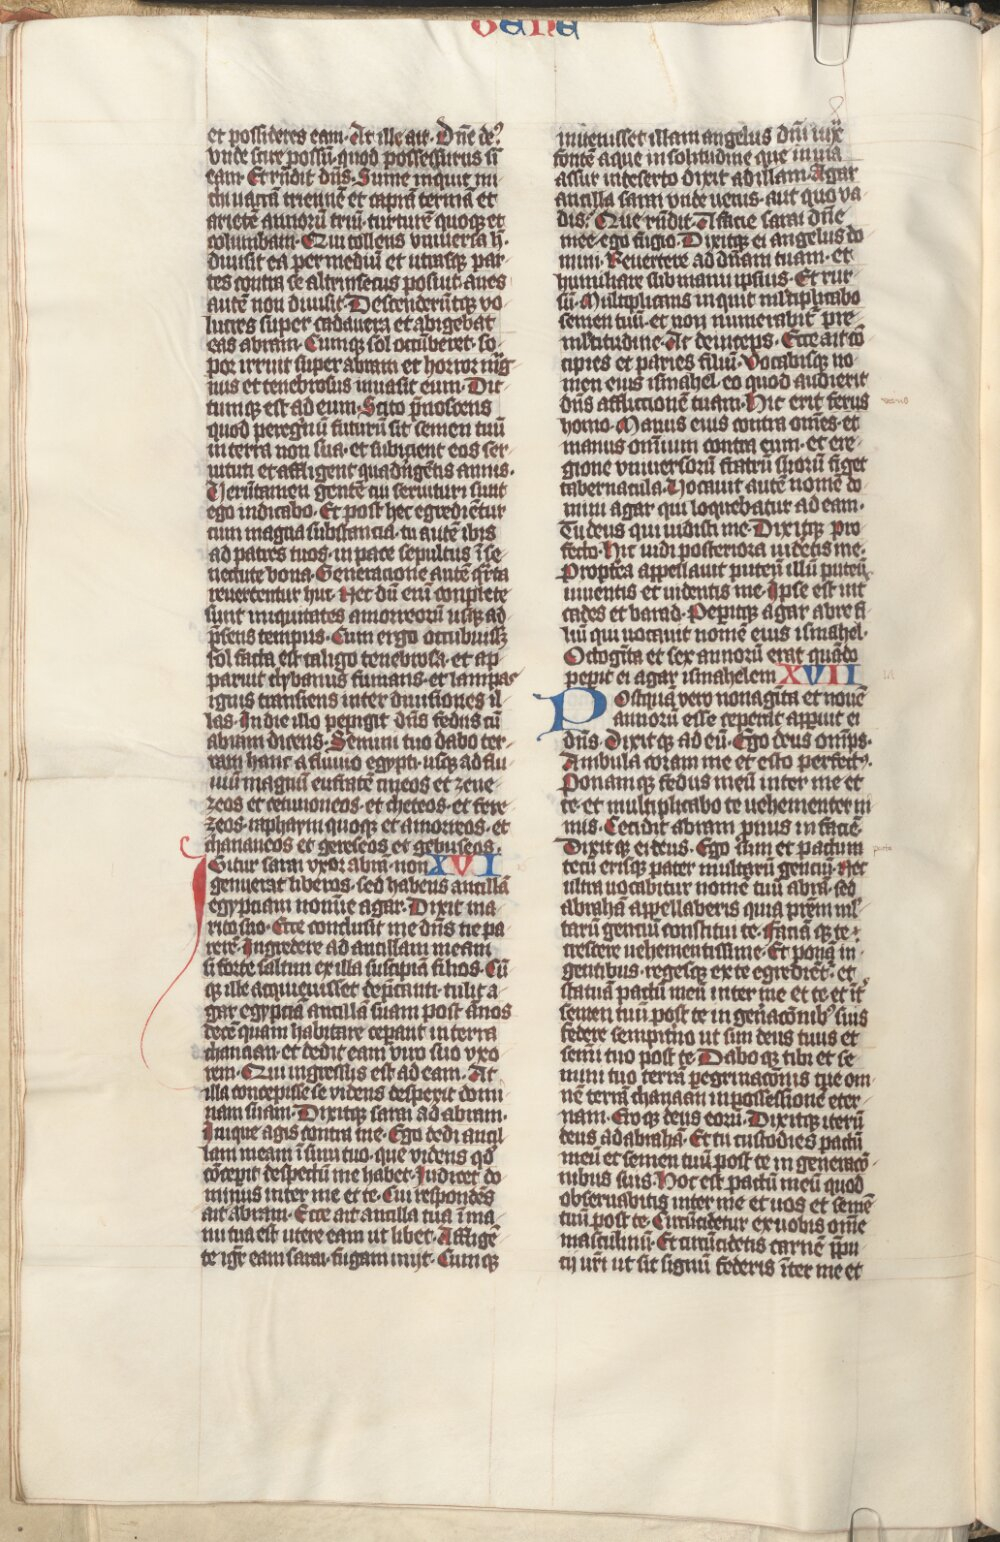 Gene
et possideres eam. At ille ait. Dñe deꝰ
vnde scire possū. quod possessurus sī
eam Et rñdit dñs. Sume inquit mi
chi uaccā triennē et caprā termā et
arietē annorū triū. turturē quoqꝫ et
columbam. Qui tollens vniuersa h̄.
diuisit ea per mediū et utrasqꝫ par
tes contra se altrinsecus posuit. aues
autē non diuisit. Descenderūtqꝫ vo
lucres super cadauera et abigebat
eas abram. Cumqꝫ sol occūberet. so
por irruit super abram et horror mag
nus et tenebrosus inuasit eum. Dic
tumqꝫ est ad eum. Scito p̄noscens
quod peregnū futurū sit semen tuū
in terra non sua. et subicient eos ser
uituti et affligent quadrīgētis annis.
Verūtamen gentē cui seruituri sunt
ego iudicabo. Et post hec egredientur
cum magna substancia. tu autē ibis
ad patres tuos. in pace sepultus ī se
nectute bona. Generacione autē q̄rta
reuertentur huc. Nec dū enī conplete
sunt iniquitates amorreorū usqꝫ ad
p̄sens tempus. Cum ergo occubuissꝫ
sol facta est caligo tenebrosa. et ap
paruit clybanus fumans. et lampas
ignis transiens inter diuisiones il
las. In die illo pepigit dñs fedus cū
abram dicens. Semini tuo dabo ter
ram hanc a fluuio egypti. usqꝫ ad flu
uiū magnū eufratē cineos et zene
zeos et cetmoneos. et cheteos. et fere
zeos. raphaym quoqꝫ et amorreos. et
chananeos et gerseos et gebuseos.
Igitur sarai vxor abrā. non XVI
genuerat liberos. sed habens ancillā
egyptiam nomīe agar. Dixit ma
rito suo. Ecce conclusit me dñs ne pa
rerē. Ingredere ad ancillam meam
si forte saltim ex illa suscipiā filios. Cū
qꝫ ille acquieuisset dep̄canti. tulit a
gar egypciā ancillā suam post ānos
decē quam habitare ceperant in terra
chanaan. et dedit eam viro suo vxo
rem. Qui ingressus est ad eam. At
illa concepisse se videns despexit domi
nam suam. Dixitqꝫ sarai ad abram.
Inique agis contra me. Ego dedi ancil
lam meam ī sinu tuo. que videns qd̄
cōceperit despectui me habet. Iudicet do
minus inter me et te. Cui respondēs
ait abram. Ecce ait ancilla tua ī ma
nu tua est utere eam ut libet. Affligē
te igr̄ eam sarai. fugam inijt. Cumqꝫ
inuenisset illam angelus dn̄i iuxͣ
fontē aque in solitudine que in uia
assur in deserto dixit ad illam. Agar
ancilla sarai vnde venis. aut quo va
dis. Que rn̄dit. A facie sarai dñe
mee. ego fugio. Dixitqꝫ ei angelus do
mini. Reuertere ad dñam tuam. et
humiliare sub manu ipsius. Et rur
sū. Multiplicans inquit ml̄tiplicabo
semen tuū. et non numerabit̄ pre
ml̄titudine. Ac deinceps. Ecce ait cō
cipies et paries filiū. Vocabisqꝫ no
men eius ismahel. eo quod audierit
dñs afflictionē tuam. Hic erit ferus
homo. Manus eius contra om̄es. et
manus omnium contra eum. et ere
gione vniuersorū fratrū suorū figet
tabernacula. Vocauit autē nomē do
mini agar qui loquebatur ad eam.
Tu deus qui uidisti me. Dixitqꝫ pro
fecto. Hic uidi posteriora uidētis me.
Propt̄ea appellauit puteū illū puteū
uiuentis et uidentis me. Ipse est int̄
cades et barad. Peperitqꝫ agar abre fi
liū qui uocauit nomē eius ismahel.
Octogīta et sex annorū erat quādo
peperit ei agar ismahelem XVII
Postquā vero nonagīta et nouē
annorū esse ceperat apparuit ei
dñs. Dixitqꝫ ad eū. Ego deus omp̄s.
Ambula coram me et esto perfectꝰ.
Ponamqꝫ fedus meū inter me et
te. et multiplicabo te uehementer ni
mis. Cecidit abram pronus in faciē.
Dixitqꝫ ei deus. Ego sum et pactum
tecū erisqꝫ pater multarū genciū. Nec
ultra uocabitur nomē tuū abrā. sed
abrahā appellaberis quia prēm ml̄
tarū genciū constitui te. Faciā qꝫ te
crescere uehementissime. Et ponā in
gentibus. regesqꝫ ex te egrediēt̄. et
statuā pactū meū inter me et te et īt̄
semen tuū post te in gen̄acōnibꝰ suis
federe sempit̄no ut sim deus tuus et
semī tuo post te. Dabo qꝫ tibi et se
mini tuo terrā peregrinacōnis tue om
nē terrā chanaan in possessionē eter
nam. Eroqꝫ deus eorū. Dixitqꝫ iterū
deus ad abrahā. Et tu custodies pactū
meū et semen tuū post te in generacō
nibus suis. Hoc est pactū meū quod
obseruabitis inter me et uos et semē
tuū post te. Circūcidetur ex uobis om̄e
masculinū. Et circūcidetis carnē p̄pu
cij ur̄i ut sit signū federis īter me et